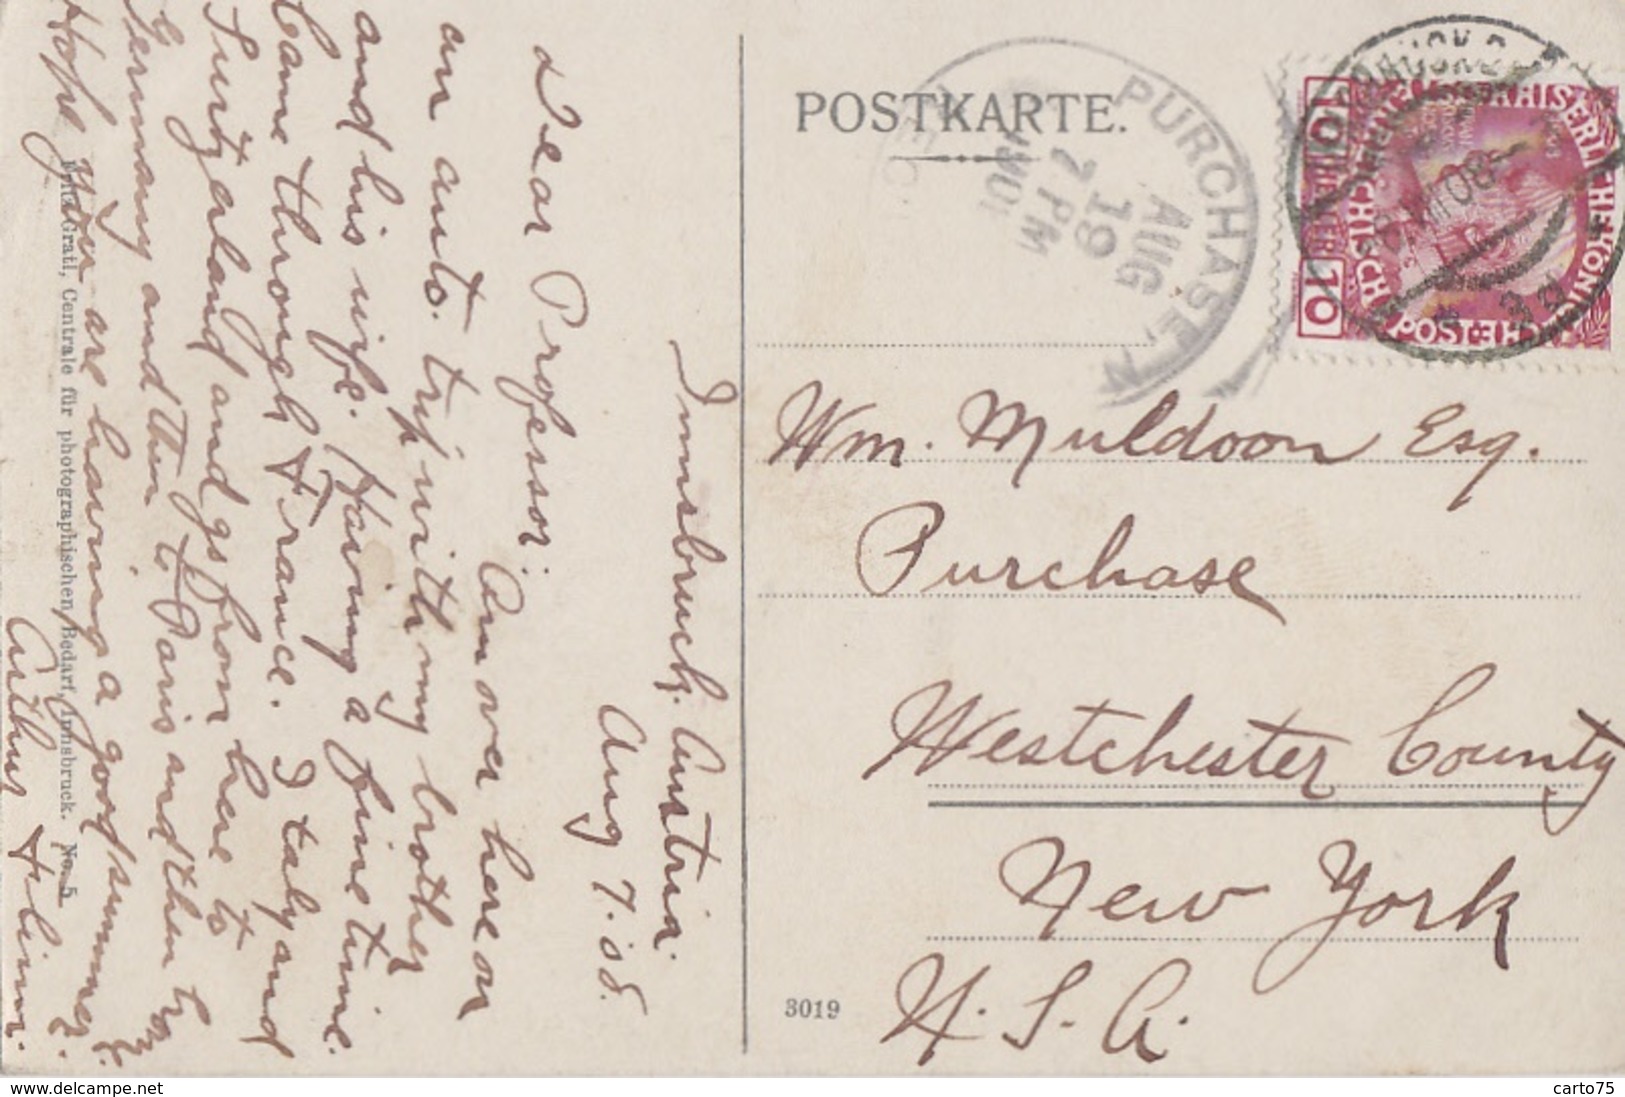 Innsbruck. Austria.
Aug 7. 08.
Dear Professor:
Am over here on
an auto. trip with my brother
and his wife. Having a fine time.
Came through France. Italy and
Switzerland and go from here to
Germany and then to Paris and then
Hope you are having a good summer.
Arthur
Fritz Gratl, Centrale für photographischen Bedarf, Innsbruck. No. 5
POSTKARTE.
PURCHASE, N
AUG
19
7 PM
1908
REC'D
10 HELLER 10
KAISERLICHE KÖNIGLICHE
ÖSTERREICHISCHE
POST
08
Wm. Muldoon Esq.
Purchase
Westchester County
New York
U. S. A.
3019
delcampe.net
carto75